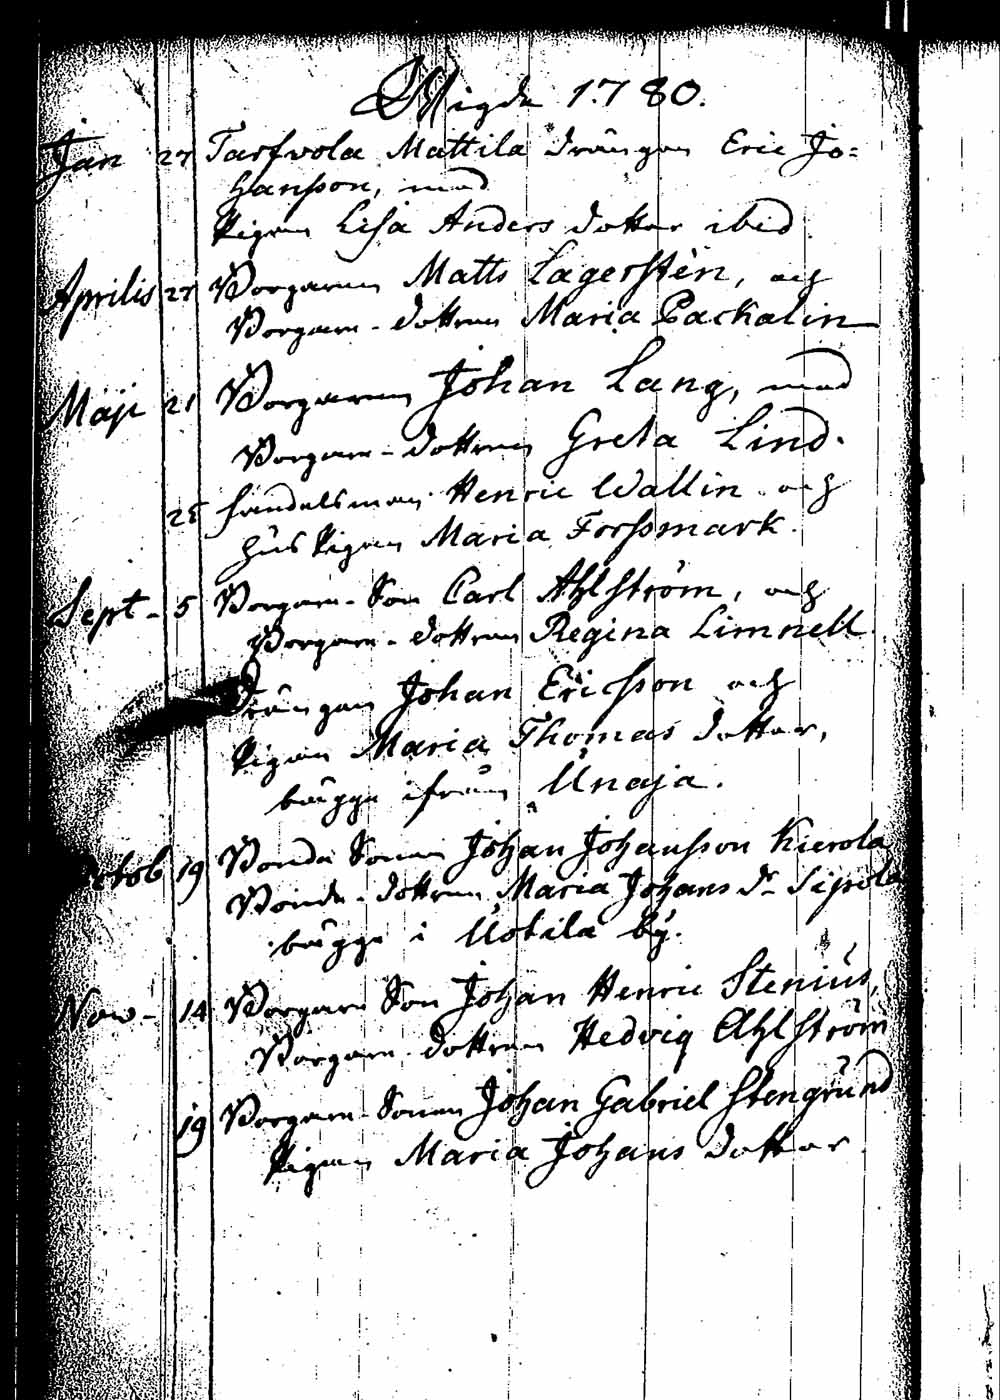 Wigde 1780.
Jan 27 Tarfvola Mattila Drängen Eric Jo=
hansson, med
Pigan Lisa Anders dotter ibid.
Aprilis 27 Borgaren Matts Lagerstèn, och
Borgare-dottren Maria Packalin
Maji 21 Borgaren Johan Lang, med
Borgare-dottren Greta Lind.
25 Handelsman Henric Wallin och
hus Pigan Maria Forssmark.
Sept- 5 Borgare-Son Carl Ahlström, och
Borgare-dottren Regina Limnell
Drängen Johan Ericsson och
Pigan Maria Thomas dotter,
bägge ifrån Unaja.
Octob 19 Bonde Sonen Johan Johansson Kierola
Bonde-dottren Maria Johans Dr Sipola
bägge i Uotila by.
Nov- 14 Borgare Son Johan Henric Stenius,
Borgare-dottren Hedvig Ahlström
19 Borgare-Sonen Johan Gabriel Stengrund
Pigan Maria Johans dotter